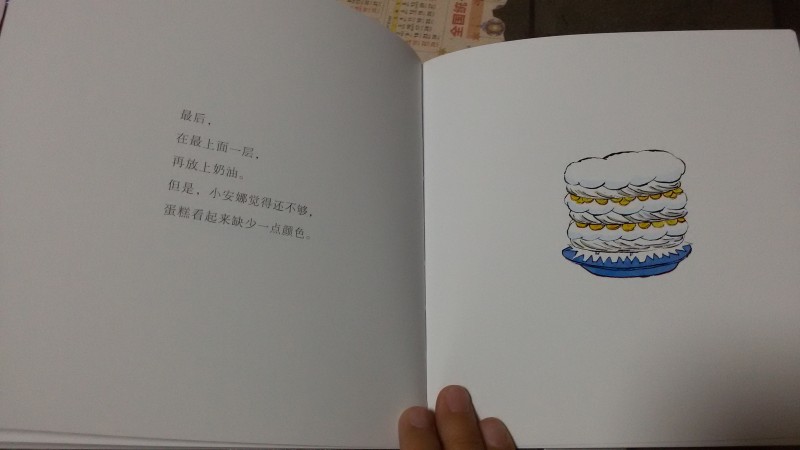 最后，
在最上面一层，
再放上奶油。
但是，小安娜觉得还不够，
蛋糕看起来缺少一点颜色。